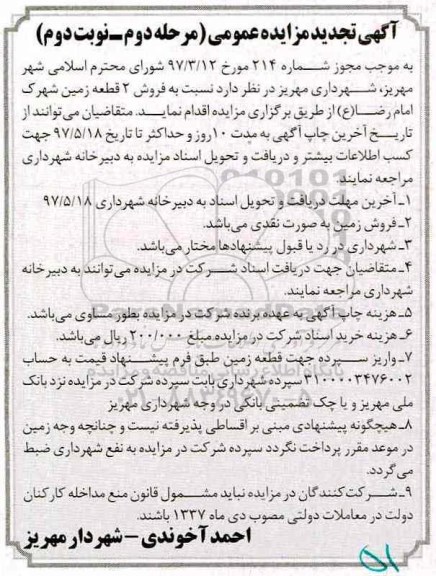 آگهی تجدید مزایده عمومی (مرحله دوم ـ نوبت دوم)
به موجب مجوز شماره ۲۱۴ مورخ ۹۷/۳/۱۲ شورای محترم اسلامی شهر
مهریز، شهرداری مهریز در نظر دارد نسبت به فروش ۲ قطعه زمین شهرک
امام رضا(ع) از طریق برگزاری مزایده اقدام نماید. متقاضیان می‌توانند از
تاریخ آخرین چاپ آگهی به مدت ۱۰ روز و حداکثر تا تاریخ ۹۷/۵/۱۸ جهت
کسب اطلاعات بیشتر و دریافت و تحویل اسناد مزایده به دبیرخانه شهرداری
مراجعه نمایند.
۱ـ آخرین مهلت دریافت و تحویل اسناد به دبیرخانه شهرداری ۹۷/۵/۱۸
۲ـ فروش زمین به صورت نقدی می‌باشد.
۳ـ شهرداری در رد یا قبول پیشنهادها مختار می‌باشد.
۴ـ متقاضیان جهت دریافت اسناد شرکت در مزایده می‌توانند به دبیرخانه
شهرداری مراجعه نمایند.
۵ـ هزینه چاپ آگهی به عهده برنده شرکت در مزایده بطور مساوی می‌باشد.
۶ـ هزینه خرید اسناد شرکت در مزایده مبلغ ۲۰۰/۰۰۰ ریال می‌باشد.
۷ـ واریز سپرده جهت قطعه زمین طبق فرم پیشنهاد قیمت به حساب
۳۱۰۰۰۰۳۴۷۶۰۰۲ سپرده شهرداری بابت سپرده شرکت در مزایده نزد بانک
ملی مهریز و یا چک تضمینی بانکی در وجه شهرداری مهریز
۸ـ هیچگونه پیشنهادی مبنی بر اقساطی پذیرفته نیست و چنانچه وجه زمین
در موعد مقرر پرداخت نگردد سپرده شرکت در مزایده به نفع شهرداری ضبط
می‌گردد.
۹ـ شرکت‌کنندگان در مزایده نباید مشمول قانون منع مداخله کارکنان
دولت در معاملات دولتی مصوب دی ماه ۱۳۳۷ باشند.
احمد آخوندی - شهردار مهریز